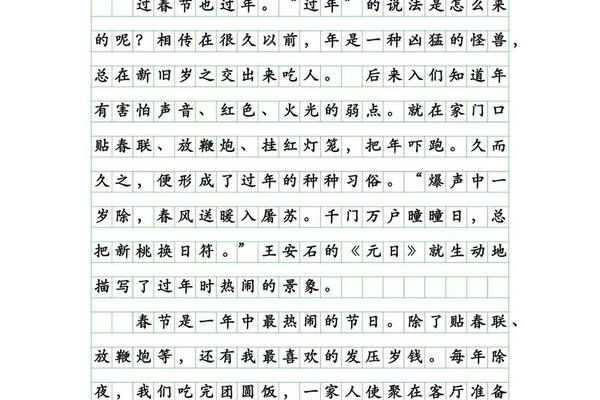 过春节也过年。“过年”的说法是怎么来
的呢？相传在很久以前，年是一种凶猛的怪兽，
总在新旧岁之交出来吃人。 后来入们知道年
有害怕声音、红色、火光的弱点。就在家门口
贴春联、放鞭炮、挂红灯笼，把年吓跑。久而
久之，便形成了过年的种种习俗。“爆声中一
岁除，春风送暖入屠苏。千门万户曈曈日，总
把新桃换日符。”王安石的《元日》就生动地
描写了过年时热闹的景象。
春节是一年中最热闹的节日。除了贴春联、
放鞭炮等，还有我最喜欢的发压岁钱。每年除
夜，我们吃完团圆饭，一家人使聚在客厅准备